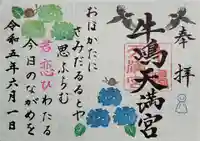 奉拝
牛嶋天満宮
おほかたに
さみだるるとや
思ふらむ
君恋ひわたる
今日のながめを
令和五年六月一日